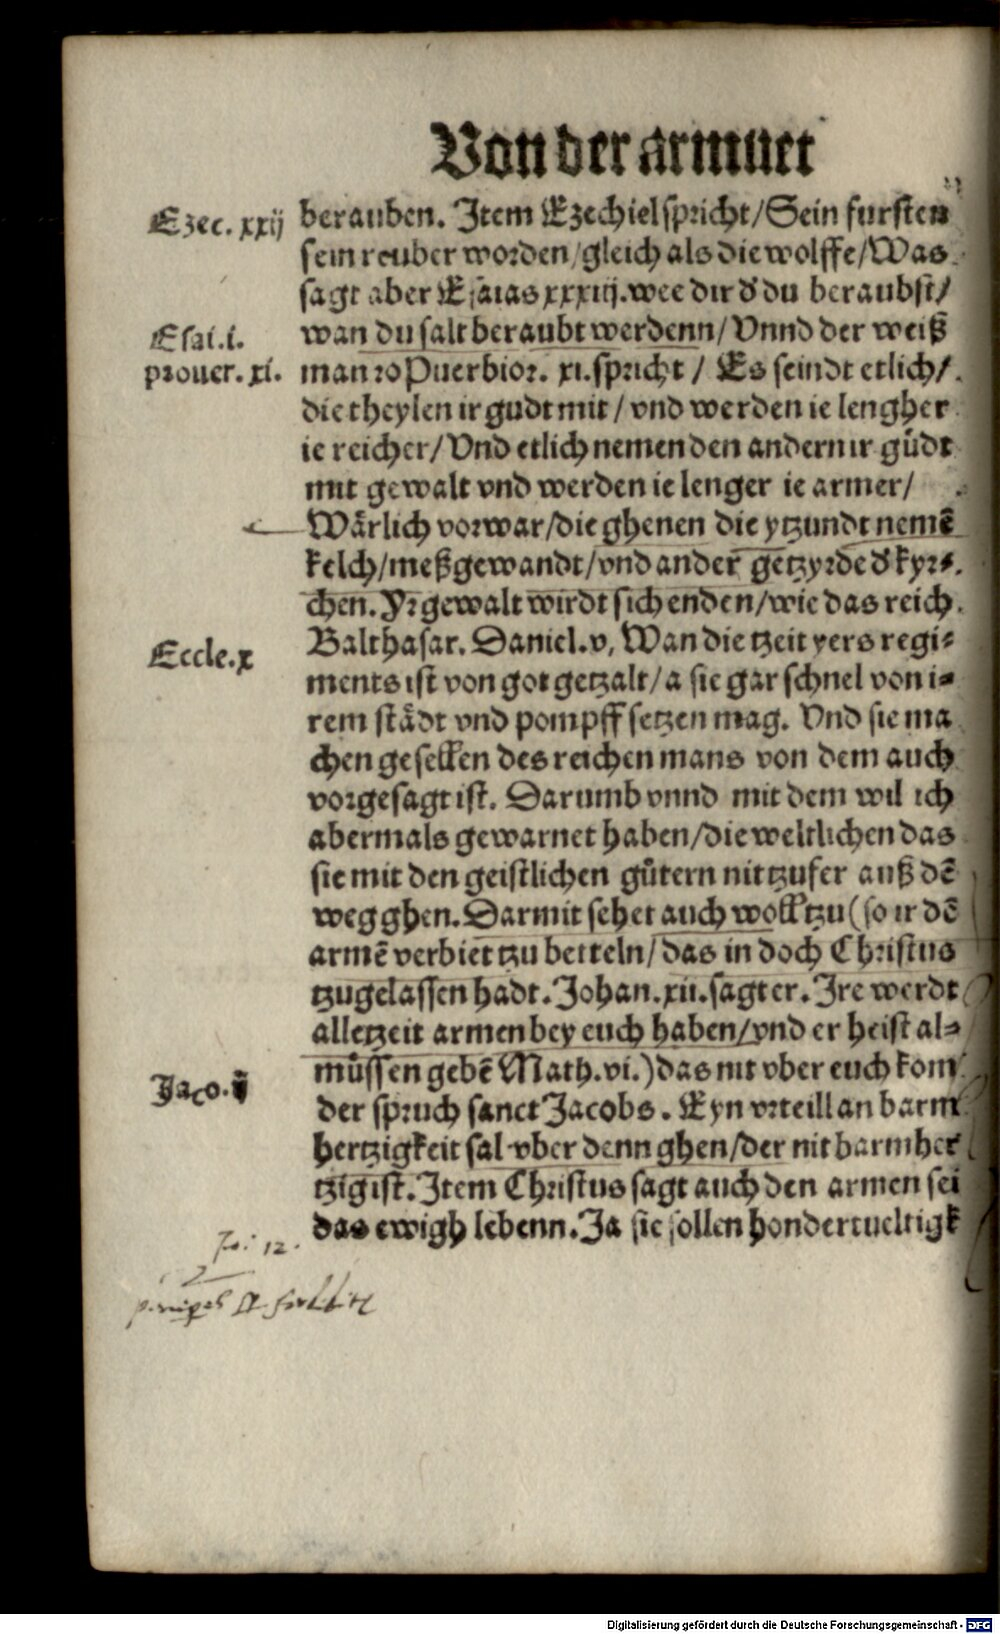 Von der armuet
Ezec. xxij
berauben. Item Ezechiel spricht/Sein fursten
sein reuber worden/gleich als die wolffe/Was
sagt aber Esaias xxxiij. wee dir d̕ du beraubst/
Esai. i.
wan du salt beraubt werdenn/Vnnd der weiß
prouer. xi.
man ro Puerbior. xi. spricht / Es seindt etlich/
die theylen ir gudt mit/vnd werden ie lengher
ie reicher/Vnd etlich nemen den andern ir gůdt
mit gewalt vnd werden ie lenger ie armer/
Wårlich vorwar/die ghenen die ytzundt nemē
kelch/meßgewandt/vnd ander getzyrde d̕ kyr⸗
chen. Yr gewalt wirdt sich enden/wie das reich
Eccle. x
Balthasar. Daniel. v, Wan die tzeit yers regi⸗
ments ist von got getzalt/a sie gar schnel von i⸗
rem ståt vnd pompff setzen mag. Vnd sie ma
chen gesellen des reichen mans von dem auch
vorgesagt ist. Darumb vnnd mit dem wil ich
abermals gewarnet haben/die weltlichen das
sie mit den geistlichen gůtern nit tzufer auß dē
weg ghen. Darmit sehet auch woll tzu (so ir dē
armē verbiet tzu betteln/das in doch Christus
tzugelassen hadt. Johan. xii. sagt er. Ire werdt
alletzeit armen bey euch haben/vnd er heist al⸗
můssen gebē Math. vi.) das nit vber euch kom
Jaco. ij
der spruch sanct Jacobs. Eyn vrteill an barm
hertzigkeit sal vber denn ghen/der nit barmher
tzig ist. Item Christus sagt auch den armen sei
das ewigh lebenn. Ja sie sollen hondertueltigk
Jo: 12.
Digitalisierung gefördert durch die Deutsche Forschungsgemeinschaft - DFG